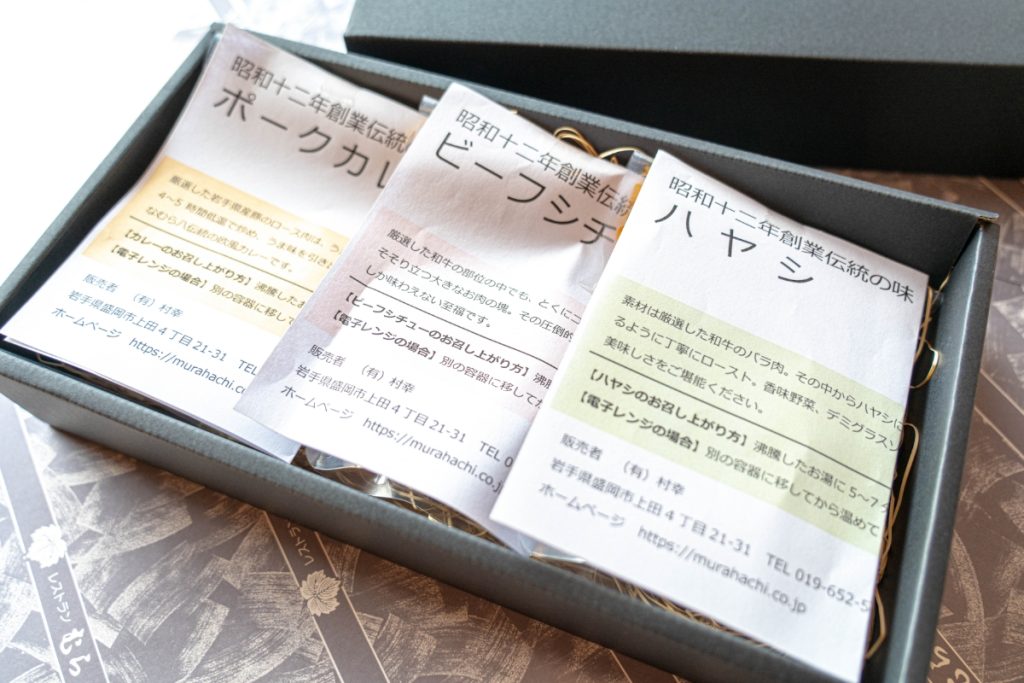 昭和十二年創業伝統
ポークカレ
厳選した若手県産豚のロース肉は、う
4～5 時間低温で炒め、うま味を引き
なむら八伝統の欧風カレーです。
【カレーのお召し上がり方】沸騰したお
【電子レンジの場合】別の容器に移して
販売者 （有）村幸
岩手県盛岡市上田4丁目21-31 TEL
ホームページ https://murahachi.co
昭和十二年創業伝統
ビーフシチ
厳選した和牛の部位の中でも、とくに
そそり立つ大きなお肉の塊。その圧倒的
しか味わえない至福です。
【ビーフシチューのお召し上がり方】沸騰
【電子レンジの場合】別の容器に移して
販売者 （有）村幸
岩手県盛岡市上田4丁目21-31 TEL 0
ホームページ https://murahachi.co.jp
昭和十二年創業伝統の味
ハヤシ
素材は厳選した和牛のバラ肉。その中からハヤシに
るように丁寧にロースト。香味野菜、デミグラスソ
美味しさをご堪能ください。
【ハヤシのお召し上がり方】沸騰したお湯に 5～7
【電子レンジの場合】別の容器に移してから温めて
販売者 （有）村幸
岩手県盛岡市上田4丁目21-31 TEL 019-652-5
ホームページ https://murahachi.co.jp
レストラン むら
レストラン